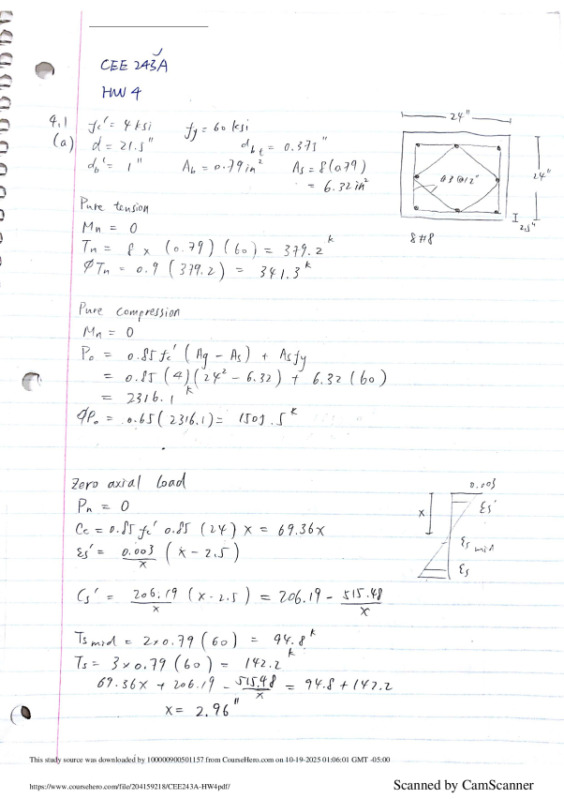 CEE 243A
HW 4
4.1
(a)
fc' = 4 ksi fy = 60 ksi
d = 21.5" dbt = 0.375"
db' = 1" Ab = 0.79 in² As = 8(0.79)
= 6.32 in²
24"
#3 @12"
24"
2.5"
8#8
Pure tension
Mn = 0
Tn = 8 x (0.79)(60) = 379.2 k
φTn = 0.9 (379.2) = 341.3 k
Pure compression
Mn = 0
Po = 0.85 fc' (Ag - As) + As fy
= 0.85 (4)(24² - 6.32) + 6.32 (60)
= 2316.1 k
φPo = 0.65 (2316.1) = 1505.5 k
Zero axial load
Pn = 0
Cc = 0.85 fc' 0.85 (24) x = 69.36x
εs' = 0.003/x (x - 2.5)
0.003
x
εs'
εs mid
εs
Cs' = 206.19/x (x - 2.5) = 206.19 - 515.48/x
Ts mid = 2x0.79 (60) = 94.8 k
Ts = 3 x 0.79 (60) = 142.2 k
69.36x + 206.19 - 515.48/x = 94.8 + 142.2
x = 2.96"
This study source was downloaded by 100000900501157 from CourseHero.com on 10-19-2025 01:06:01 GMT -05:00
https://www.coursehero.com/file/204159218/CEE243A-HW4pdf/
Scanned by CamScanner